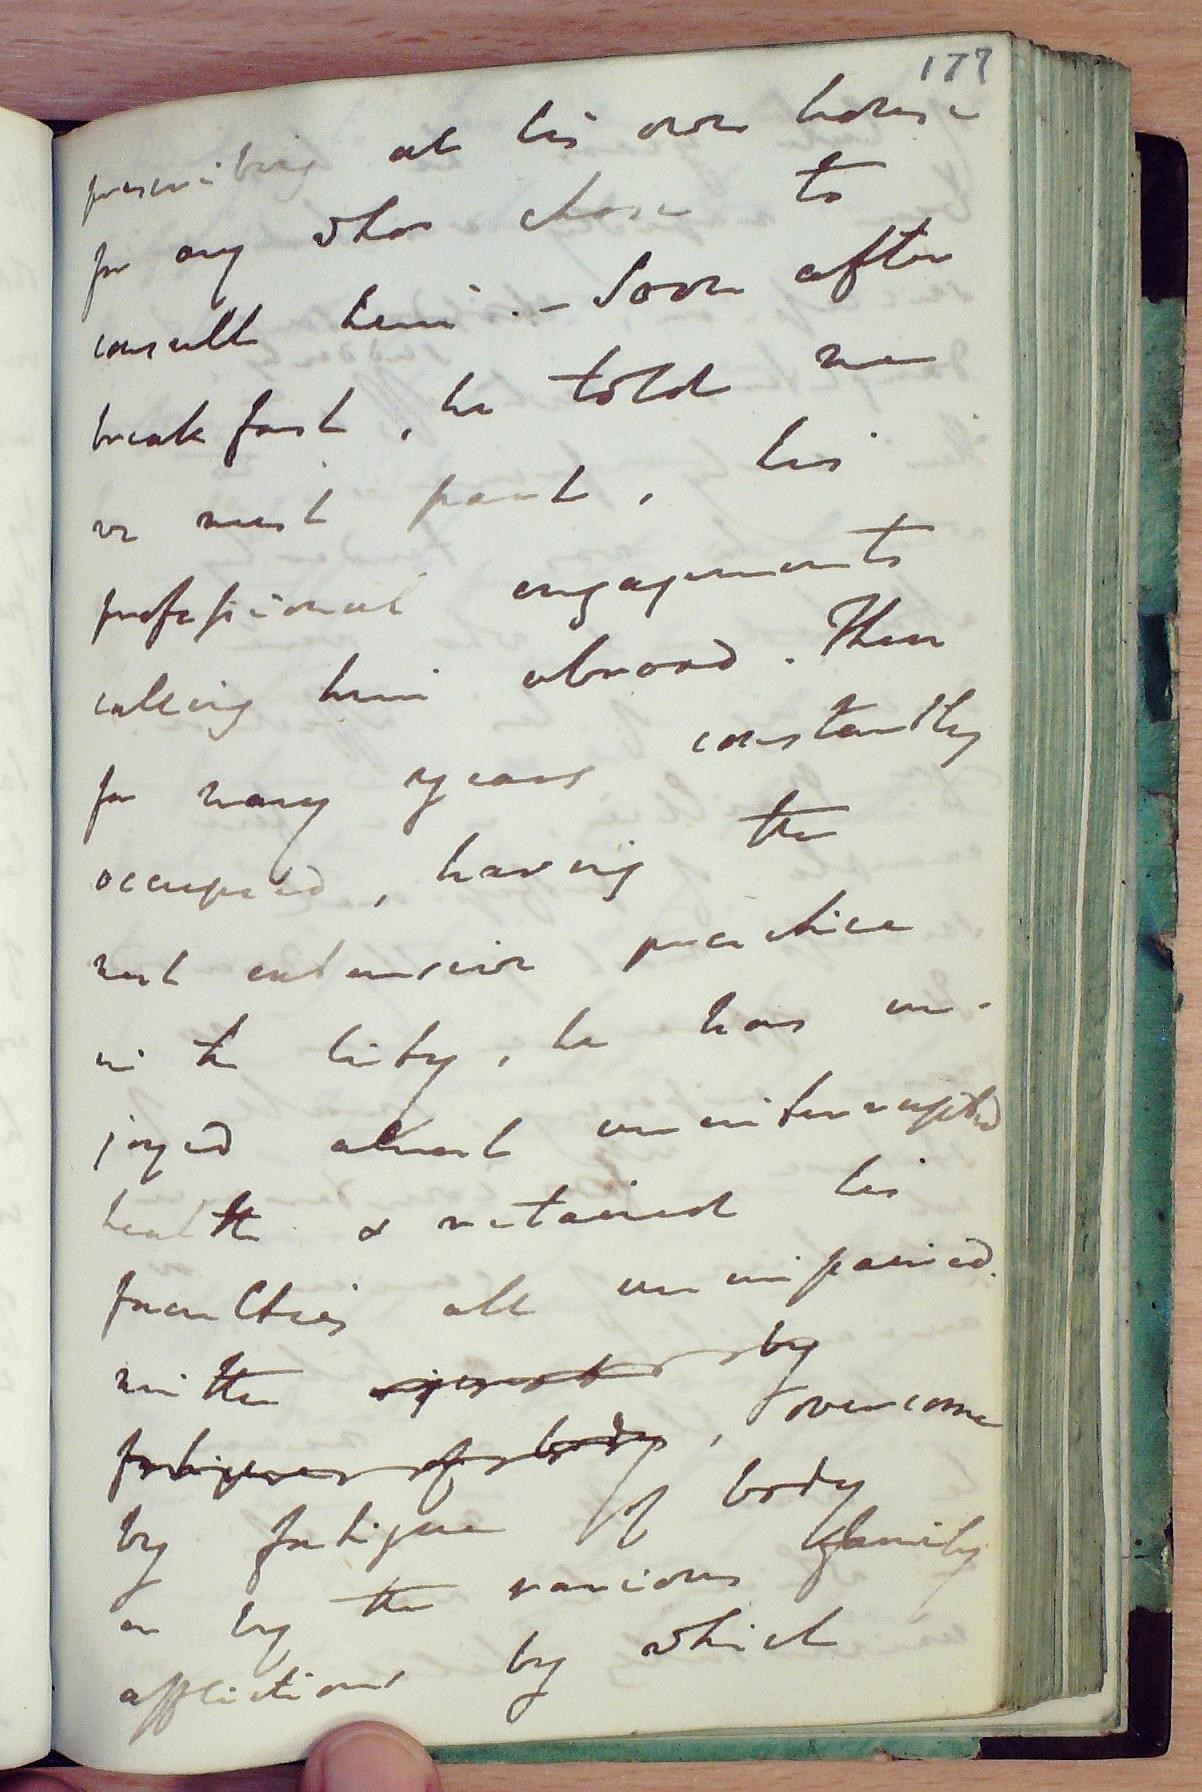 177
prescribing at his own house
for any who chose to
consult him. – Soon after
breakfast, he told me
we must part, his
professional engagements
calling him abroad. Then
for many years constantly
occupied, having the
most extensive practice
in the City, he has en-
joyed almost uninterrupted
health & retained his
faculties all unimpaired.
neither by
fatigues of body, overcome
by fatigue of body
or by the various family
afflictions by which